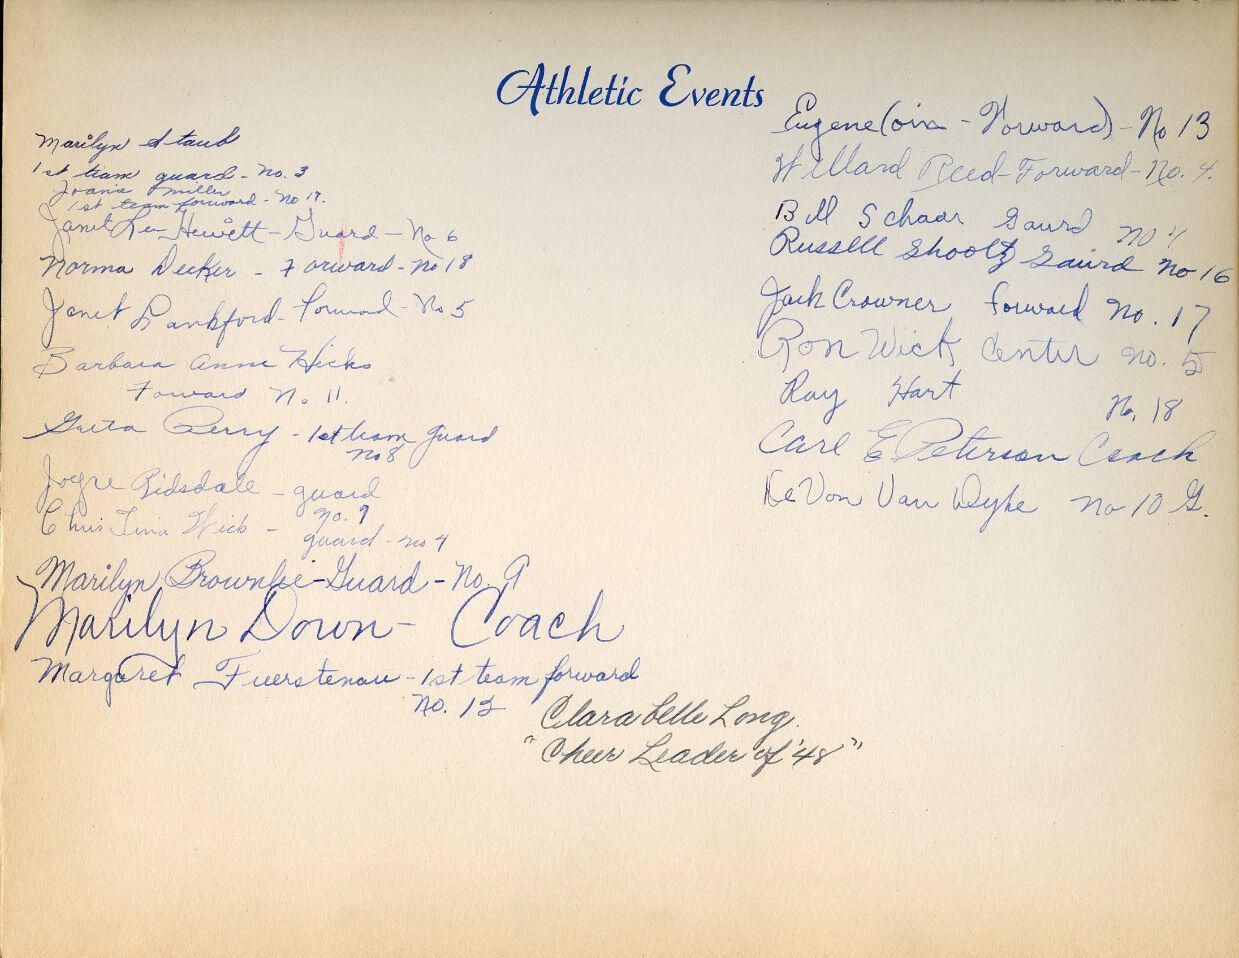 Athletic Events
Marilyn Staub
1st team guard - No. 3
Joanie Miller
1st team forward - No 17.
Janet Lee Hewett - Guard - No 6
Norma Decker - Forward - No 18
Janet Lankford - Forward - No 5
Barbara Anne Hicks
Forward No 11.
Greta Perry - 1st team guard
No 8
Joyce Ridsdale - guard
No. 9
Christina Wick -
guard - No 4
Marilyn Brownlie - Guard - No. 9
Marilyn Down - Coach
Margaret Fuerstenau - 1st team forward
No. 12
Clarabelle Long.
"Cheer Leader of '48"
Eugene - Forward) - No 13
Willard Reed - Forward - No. 4.
Bill Schaar Gaurd No
Russell Shooltz Gaurd No 16
Jack Crowner forward No. 17
Ron Wick Center No. 5
Ray Hart No. 18
Carl E Peterson Coach
DeVon Van Dyke No 10 G.